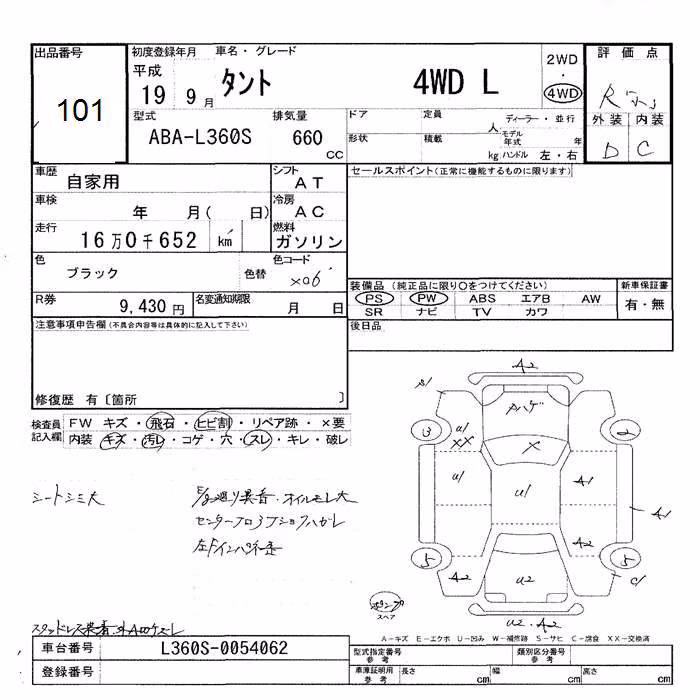 出品番号 初度登録年月 車名・グレード 評価点
101
平成 19 9月 タント 4WD L
2WD
・
4WD
外装 内装
D C
型式 排気量 ドア 定員 人 ディーラー・並行
ABA-L360S 660 CC
形状 積載 kg モデル年式 年
ハンドル 左・右
車歴 自家用 シフト AT
セールスポイント(正常に機能するものに限ります)
車検 年 月( 日) 冷房 AC
走行 16万0千652 km 燃料 ガソリン
色 ブラック 色替 色コード X06
装備品 (純正品に限り〇をつけてください) 新車保証書
PS PW ABS エアB AW 有・無
SR ナビ TV カワ
R券 9,430円 名変通知期限 月 日
注意事項申告欄(不具合内容等は具体的に記入して下さい) 後日品
修復歴 有〔箇所 〕
検査員記入欄 FW キズ・飛石・ヒビ割・リペア跡・×要
内装・キズ・汚レ・コゲ・穴・スレ・キレ・破レ
シートシミ大
オイルモレ大
A2
A1
U1
XX
X
3
2
U1 U1 A1
A1
A2
5
5
A2 U2
U2・A2
スペア
A-キズ E-エクボ U-凹み W-補修跡 S-サビ C-腐食 XX-交換済
車台番号 L360S-0054062
登録番号
型式指定番号 参考 類別区分番号 参考
車庫証明用 参考 長さ cm 幅 cm 高さ cm